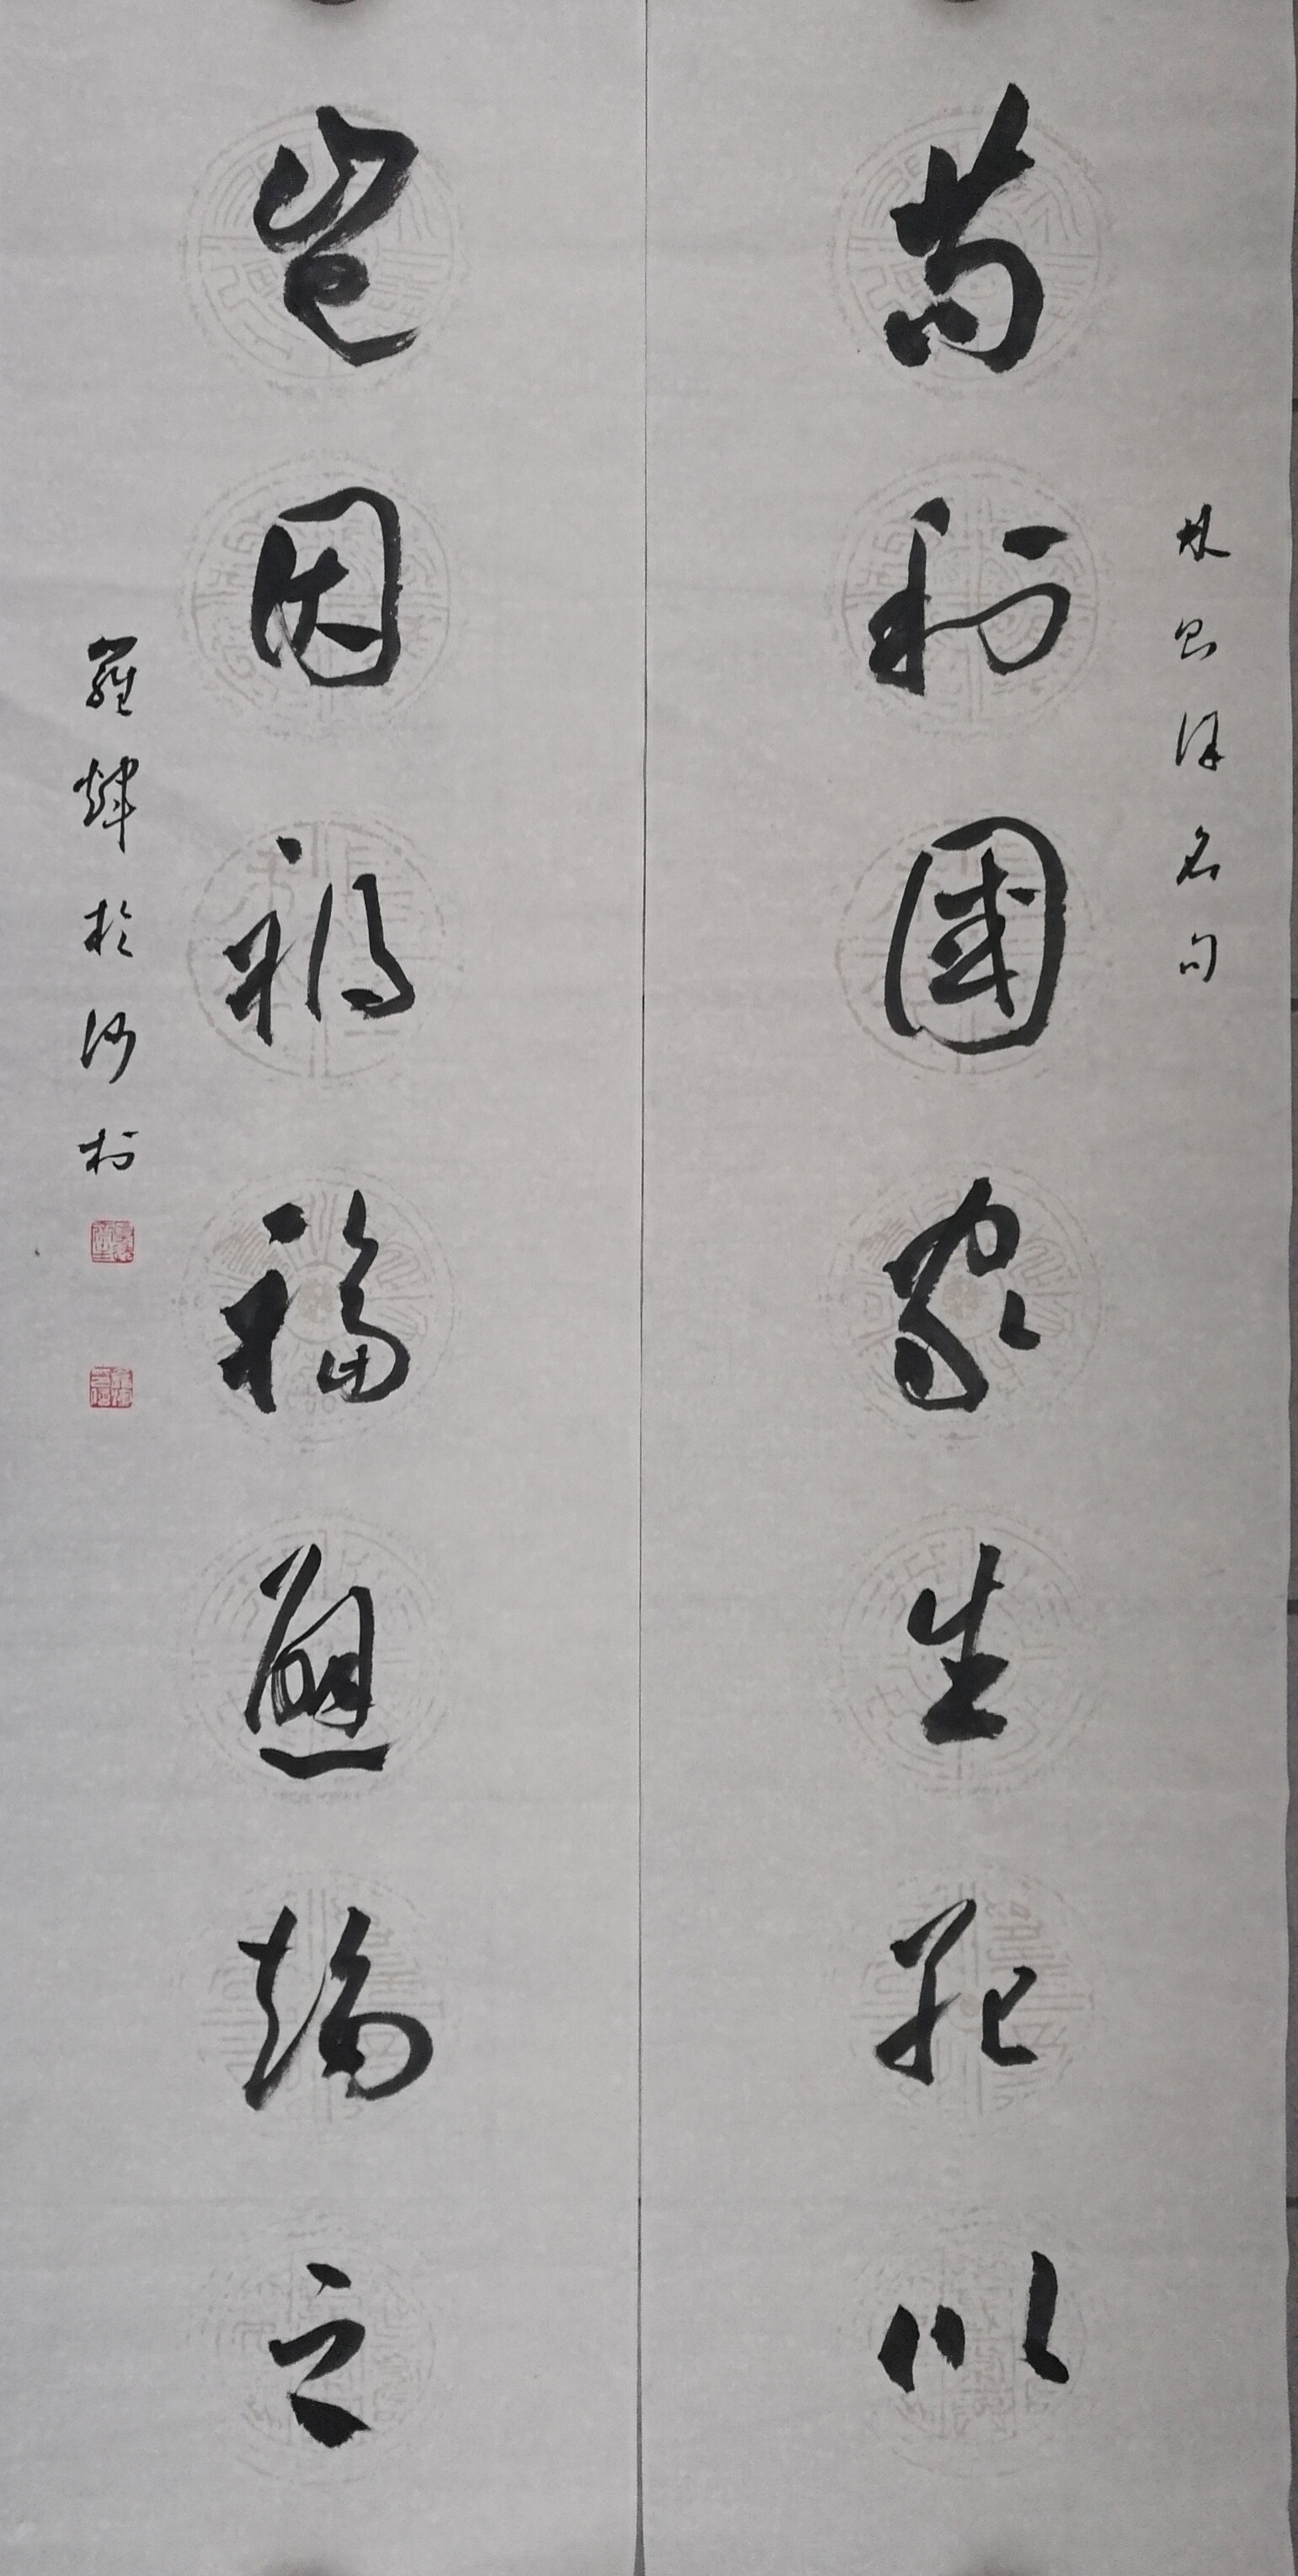 林则徐名句
苟利國家生死以
岂因禍福避趋之
羅輝於沙村